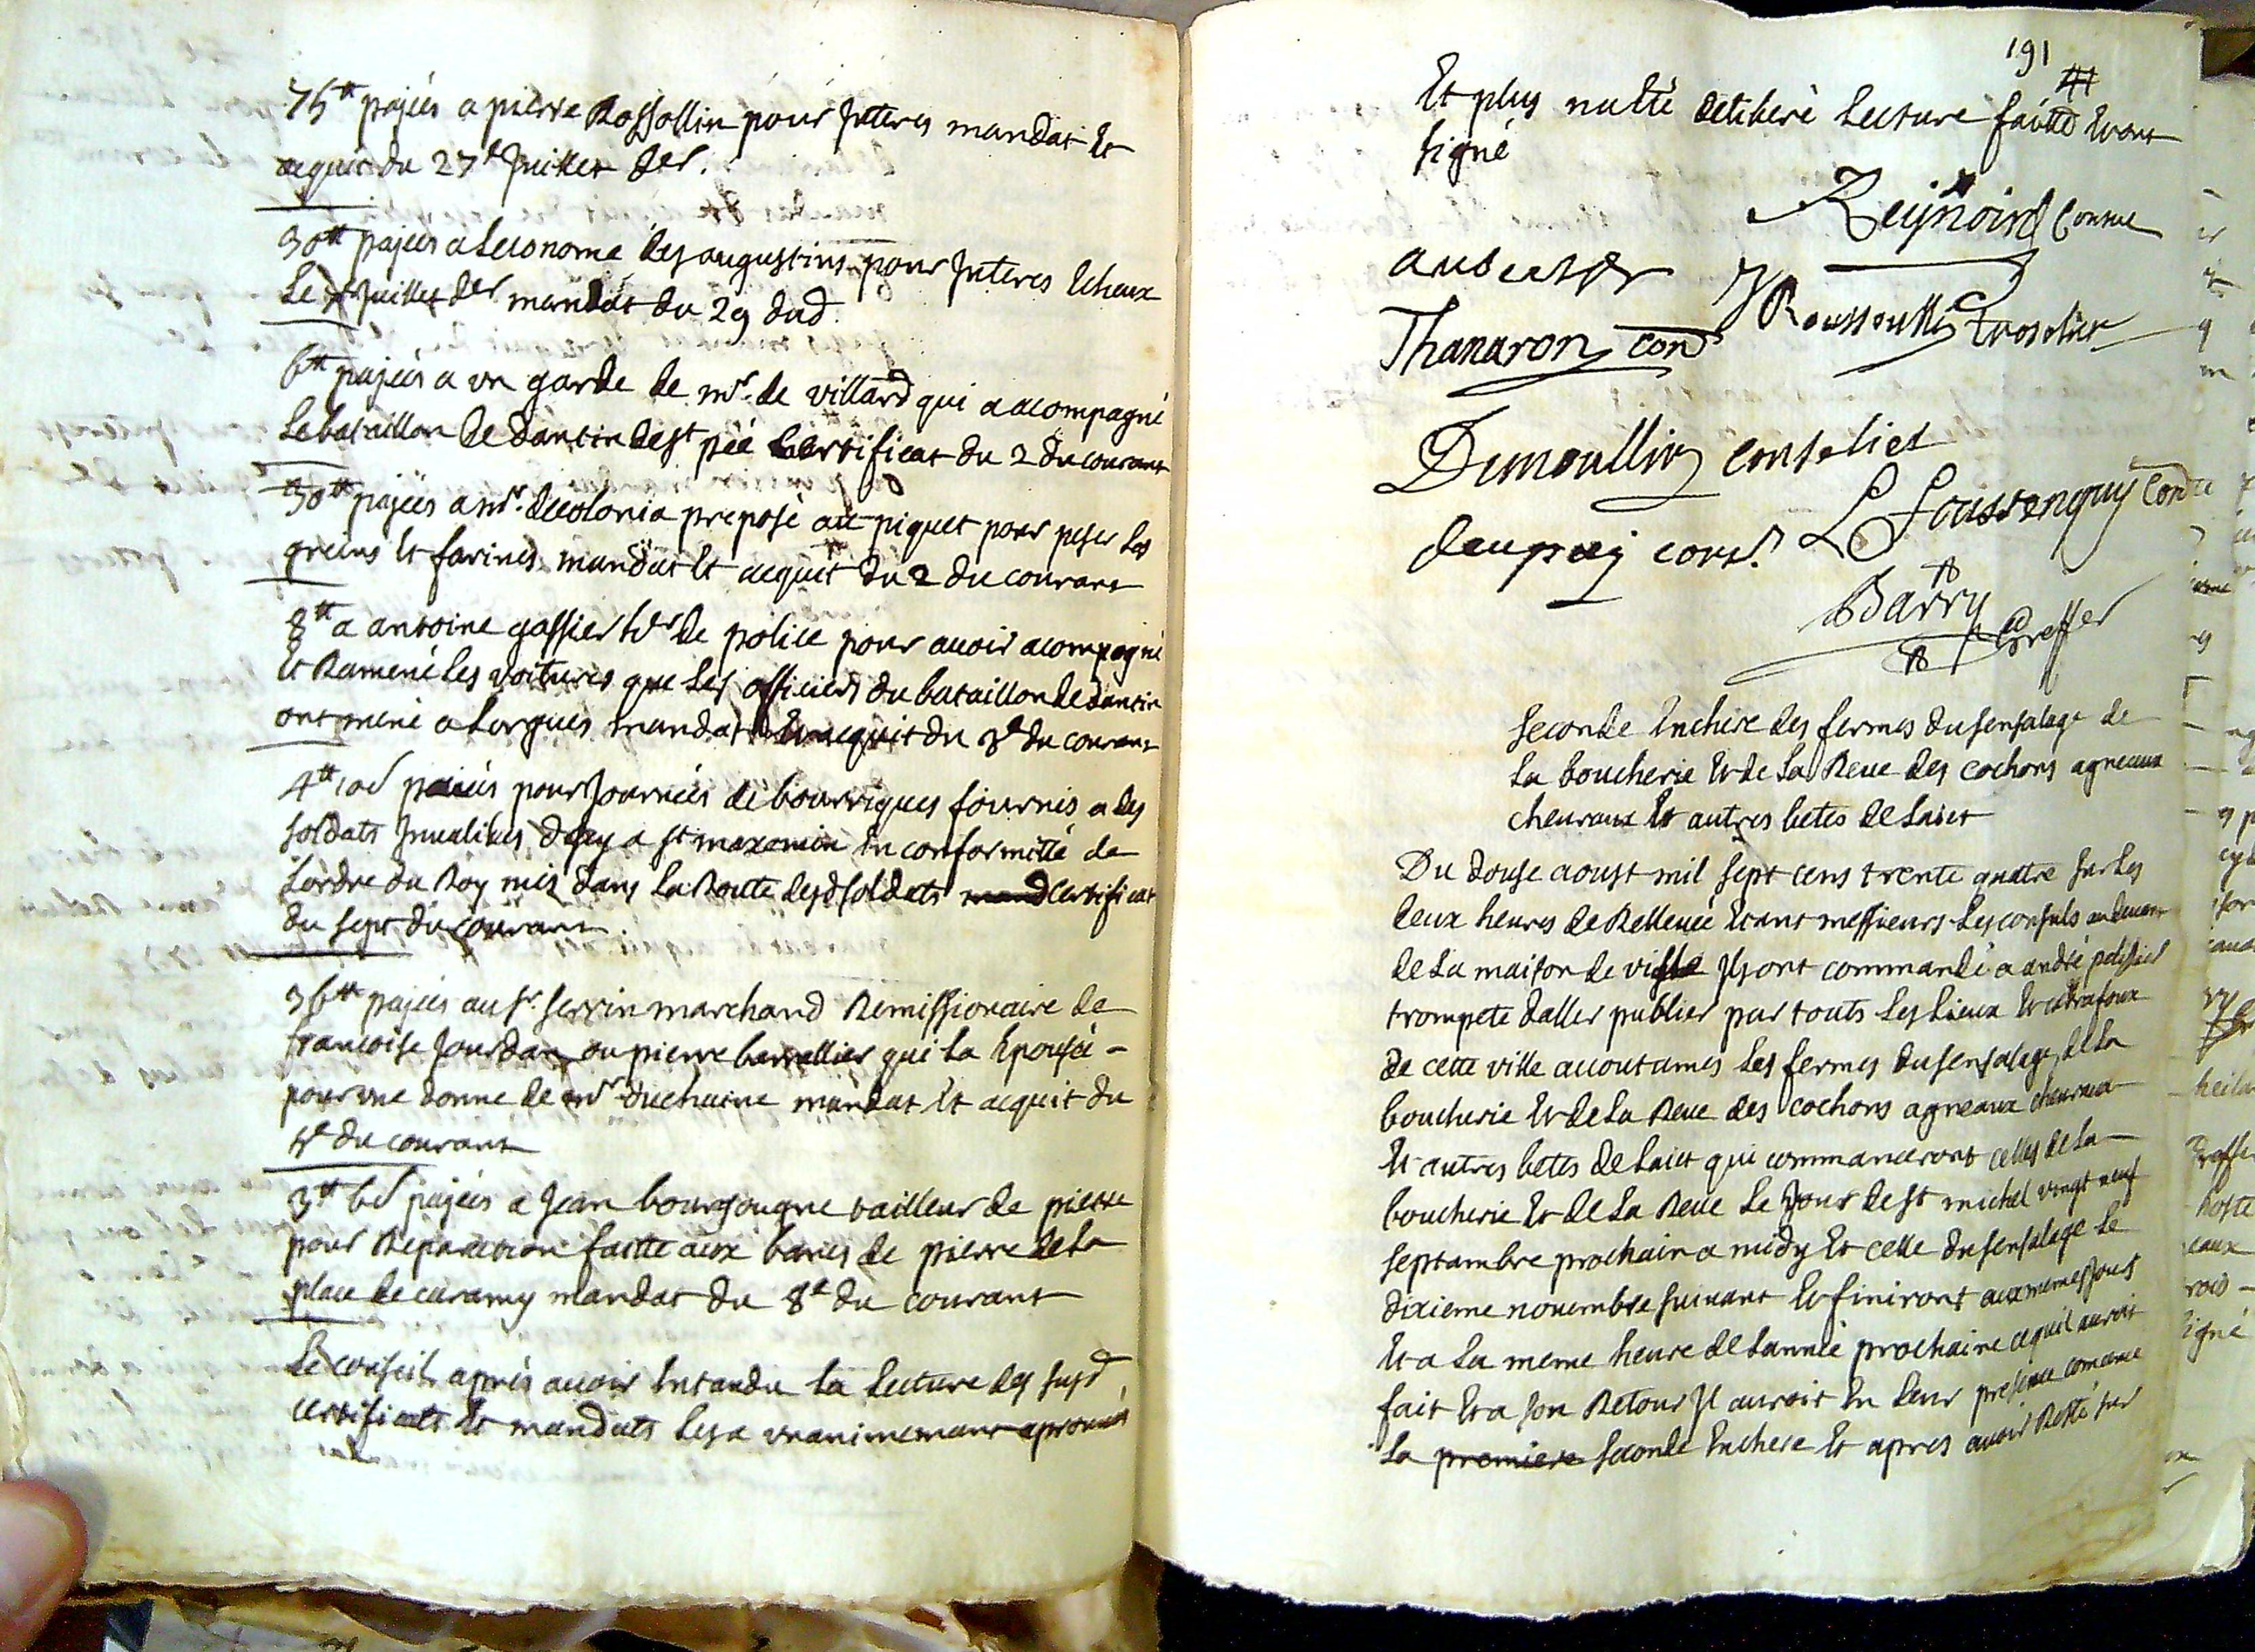 75tt pajées a pierre Rossollin pour Interes mandat et
aquit du 27e Juillet der.
30tt pajées a Leconome des augustins pour Interes Echeux
Le Juillet der mandat du 29 dud.
6tt pajées a un garde de mr. de villard qui a acompagné
Le bataillon de dantin de st pée Certificat du 2 du courant
30tt pajées a mr. decolonia preposé au piquet pour peser Les
greins et farines mandat et acquit du 2 du courant
8tt a antoine gassier de police pour avoir acompagné
et Ramené Les voitures que Les officiers du bataillon de dantin
ont mené a Lorgues mandat acquit du 3e du courant
4tt 10d paiés pour Journées de bourriques fournis a des
soldats Invalides a st maxemin En conformitté de
Lordre du Roy mis dans La Routte desd soldats mand Certificat
du sept du courant
36tt pajées au sr. serrin marchand Remissionaire de
francoise Jourdan ou pierre barrellier qui La Epousé -
pour une donne de mr duchaine mandat et acquit du
du courant
3tt 6d pajées a Jean bourgougne tailleur de pierre
pour Reparation faitte aux bancs de pierre de La
place de caramy mandat du 8e du courant
Le conseil après avoir Entandu La Lecture des susd
certificats et mandats Les a unanimemant aprouvés
191
Et plus na esté deliberé Lecture faitte Et ont
signé
Reynoird Consul
aubert
J Roussoulli
Thanaron con
Dumoullin conselier
L Foussenquy
daupuy cons.
Barry
Greffier
seconde Enchere des fermes du sensalage de
La boucherie et de La Reve des cochons agneaux
chevraux et autres betes de Laict
Du douse aoust mil sept cens trente quatre sur Les
deux heures de Rellevée Etant messieurs Les consuls au devant
de La maison de ville Ils ont commandé a andré pelissier
trompete daller publier par touts Les Lieux et carrafoux
de cette ville accoutumés Les fermes du sensalage de La
boucherie et de La Reve des cochons agneaux chevraux
et autres betes de Laict qui commanceront celles de La
boucherie et de La Reve Le Jour de st michel vingt neuf
septambre prochain a midy et celle du sensalage Le
dixieme novembre suivant et finiront aux memes Jours
et a La meme heure de Lannée prochaine ce quil auroit
fait et a son Retour Il auroit En Leur presence comancé
La premiere seconde Enchere et apres avoir Resté sur